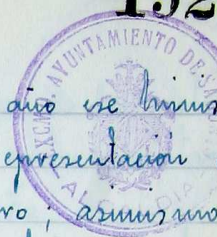 152
EXCMO. AYUNTAMIENTO DE SA
ALCALDIA
dió ese
epresentación
ro; asimismo